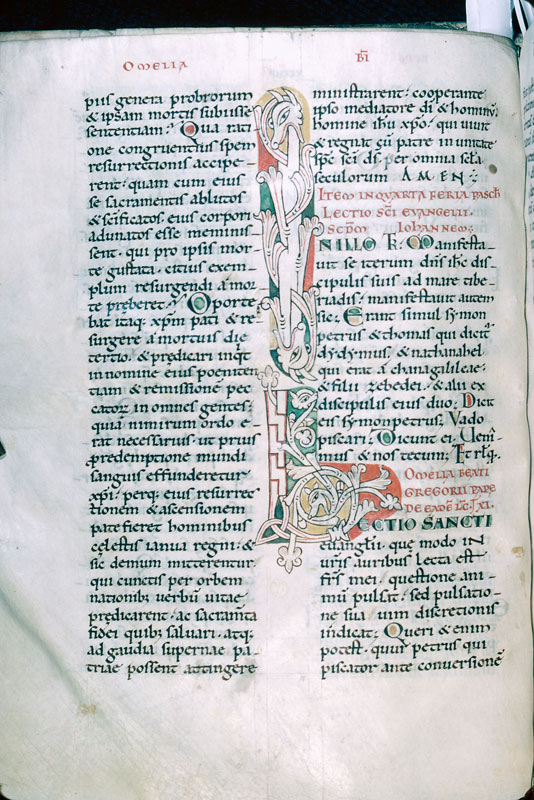 OMELIA
BI
pius genera probrorum
& ipsam mortis subisse
sententiam? Qua rati
one congruentius spem
resurrectionis accipe-
rent, quam cum eius
se sacramentis ablutos
& scificatos, eius corpori
adunatos esse meminis
sent, qui pro ipsis mor
te gustata, citius exem
plum resurgendi a mor
te preberet? Oporte-
bat itaq; xpm pati & re-
surgere a mortuis die
tertio, & predicari inqt
in nomine eius poeniten
tiam & remissione pec
catorz in omnes gentes;
quia nimirum ordo e-
rat necessarius, ut prius
predemptione mundi
sanguis effunderetur
xpi, perq; eius resurrec
tionem & ascensionem
patefieret hominibus
celestis ianua regni, &
sic demum mitterentur
qui cunctis per orbem
nationib; verbu vitae
predicarent, ac sacramta
fidei quib; salvari, atq;
ad gaudia supernae pa-
triae possent attingere
ministrarent, cooperante
ipso mediatore di & hominu
homine ihu xpo, qui vivit
& regnat cu patre in unitate
sps sci ds, per omnia scla
seculorum AMEN;
ITEM IN QUARTA FERIA PASCH
LECTIO SCI EVANGELII
SCDM IOHANNEM;
IN ILLO TR. Manifesta-
vit se iterum dns ihc dis-
cipulis suis ad mare tibe-
riadis; manifestavit autem
sic; Erant simul symon
petrus & thomas qui dicit'
dydymus, & nathanahel
qui erat a chana galileae,
& filii zebedei, & alii ex
discipulis eius duo; Dicit
eis symon petrus; Vado
piscari; Dicunt ei; Veni-
mus & nos tecum; Et rlq.
OMELIA BEATI
GREGORII PAPE
DE EADE LC LXI.
LECTIO SANCTI
evanglii, que modo IN
uris auribus lecta est
frs mei, questione ani-
mu pulsit, sed pulsatio-
ne sua vim discretionis
indicat; Queri & enim
potest, quur petrus qui
piscator ante conversione